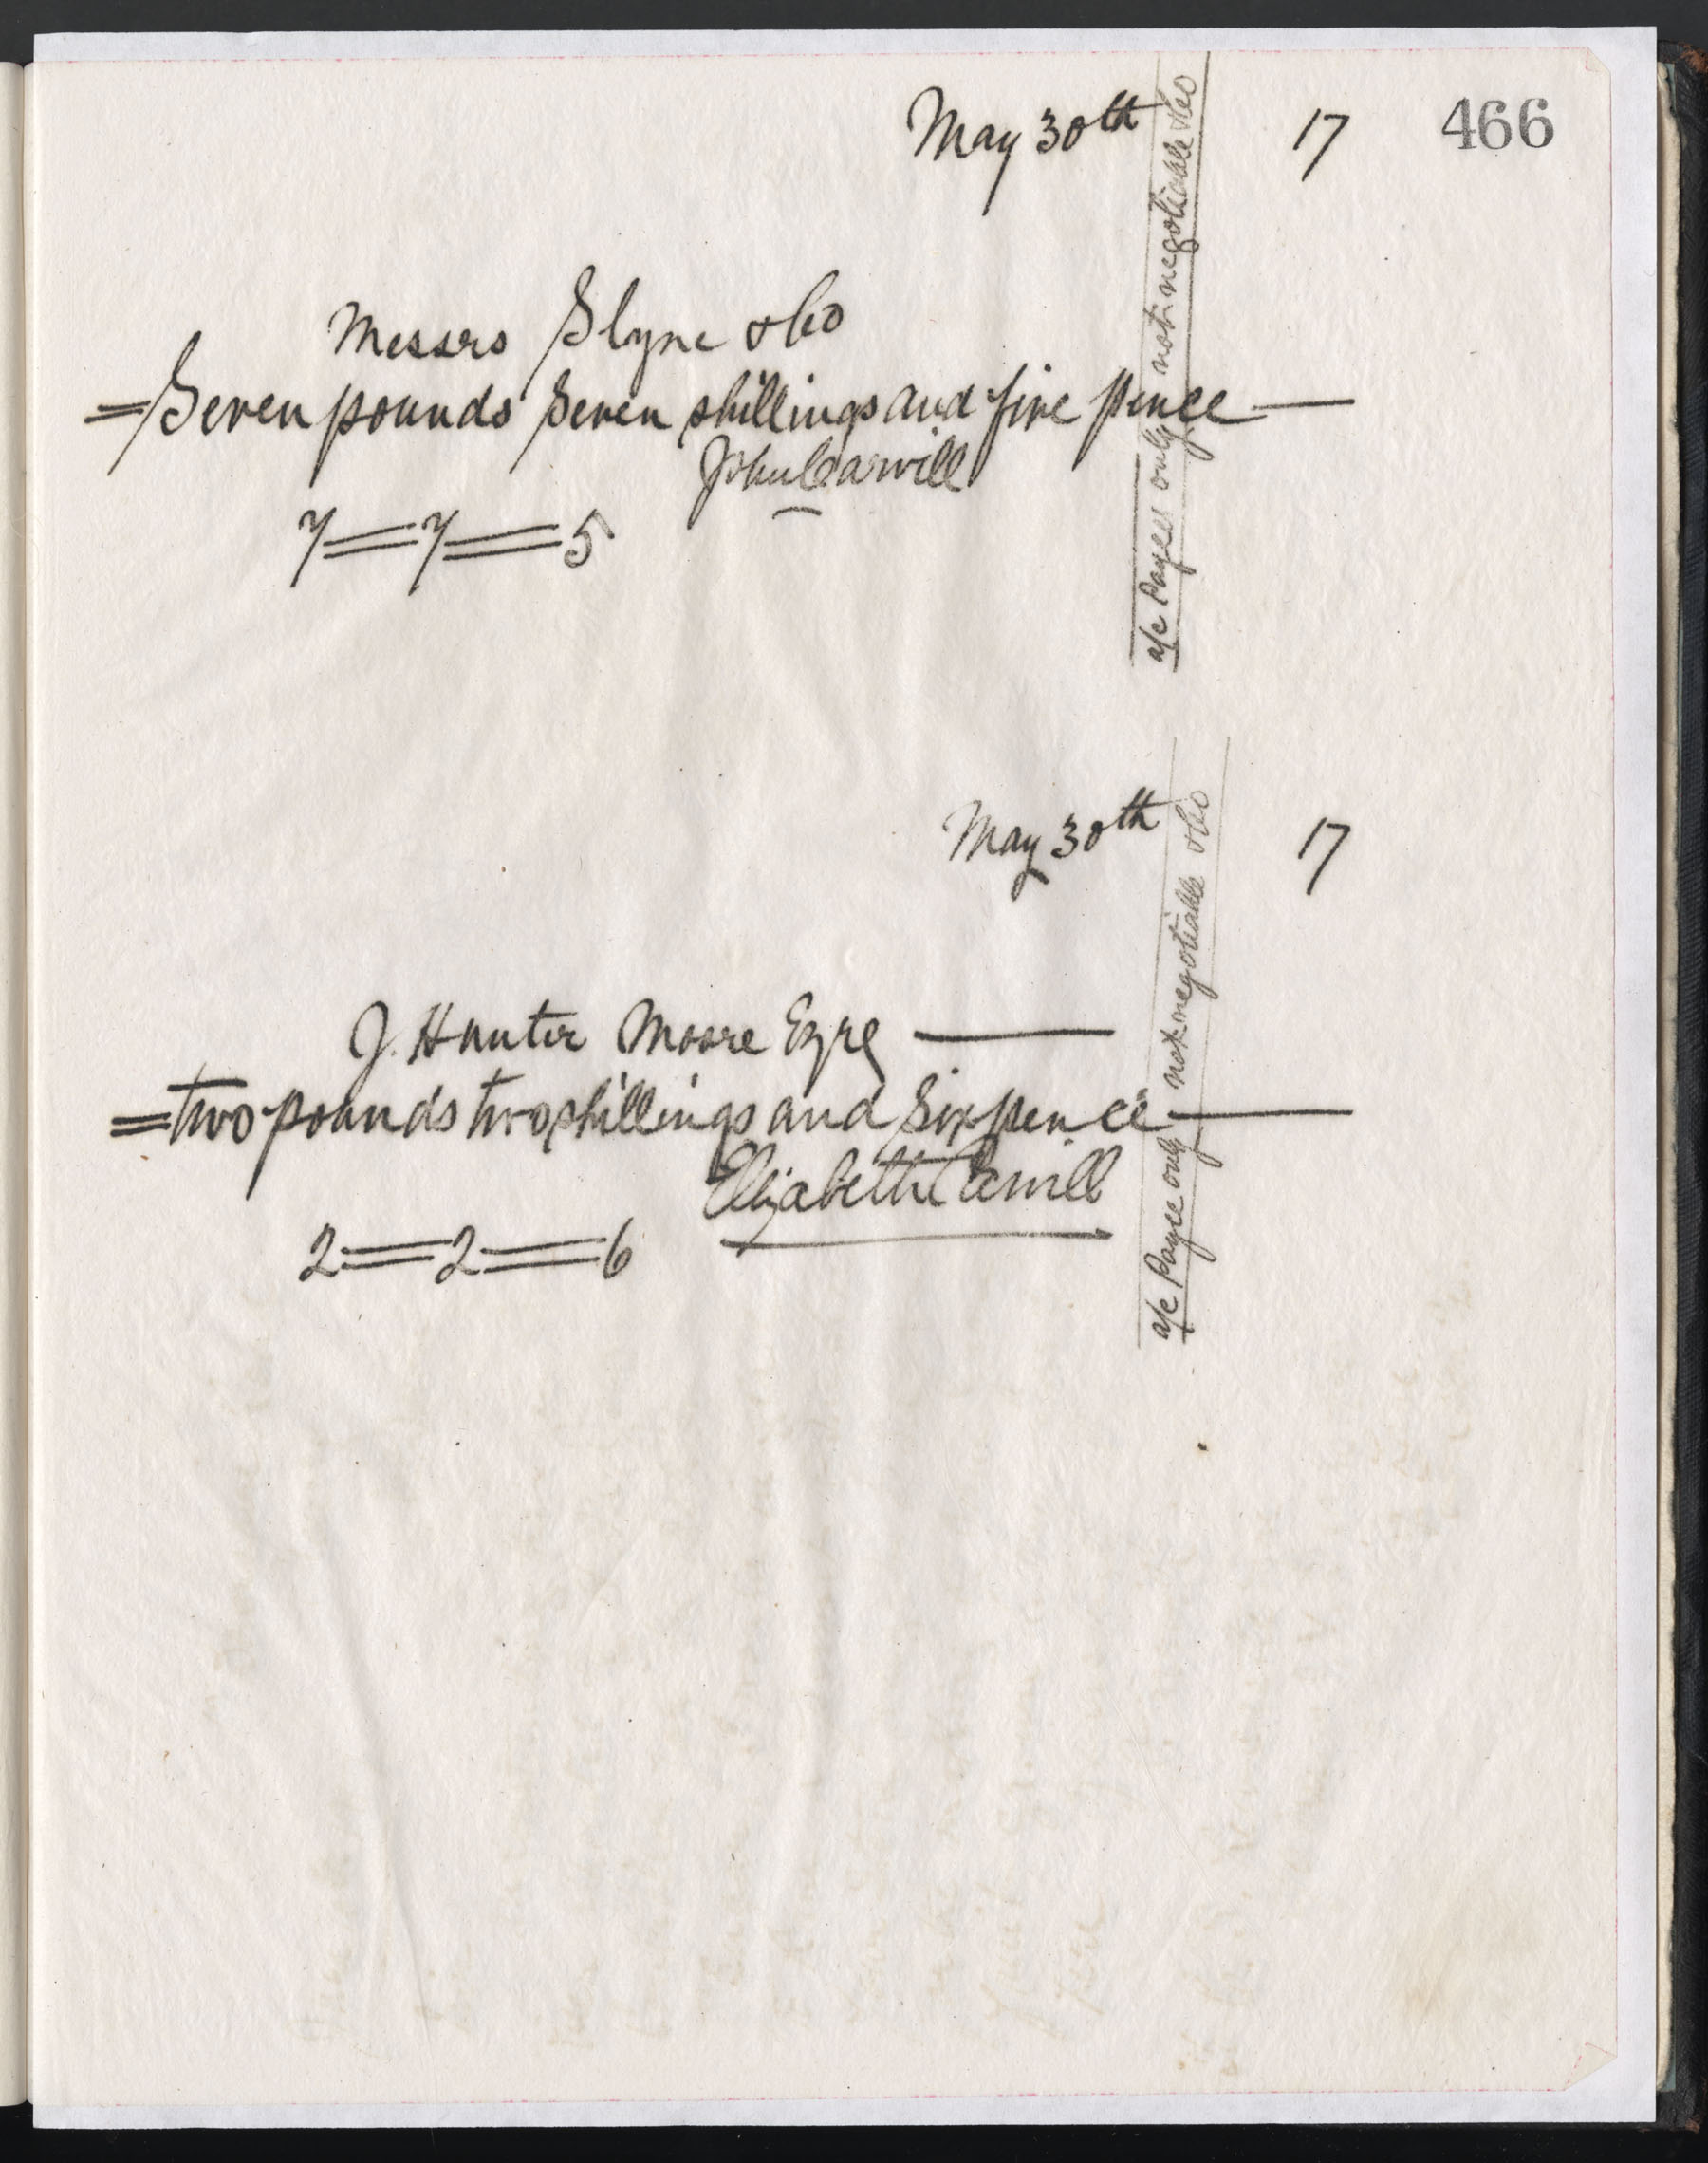 466
May 30th 17
Messrs Slyne & Co
= Seven pounds Seven shillings and five pence —
John Carvill
7 = 7 = 5
a/c Payees only not negotiable & Co
May 30th 17
J. Hunter Moore Esqre —
= two pounds two shillings and Sixpence —
Elizabeth Carvill
2 = 2 = 6
a/c Payee only not negotiable & Co